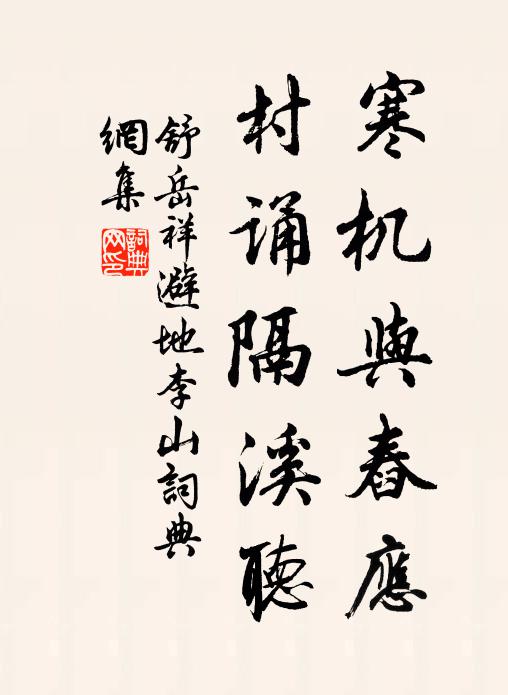 寒机與舂應
村诵隔溪聽
舒岳祥避地李山詞典
網集
詞典
网印